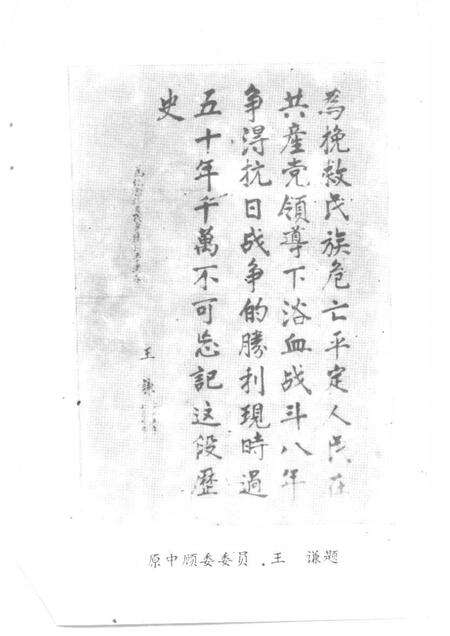 為挽救民族危亡平定人民在
共產党領導下浴血战斗八年
争得抗日战争的勝利現時過
五十年千萬不可忘記这段歷
史
王謙
原中顾委委员 王 谦题